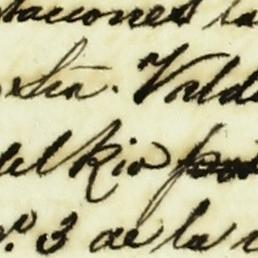 taciones la
Sria. Vald
del Rio
nº. 3 de la